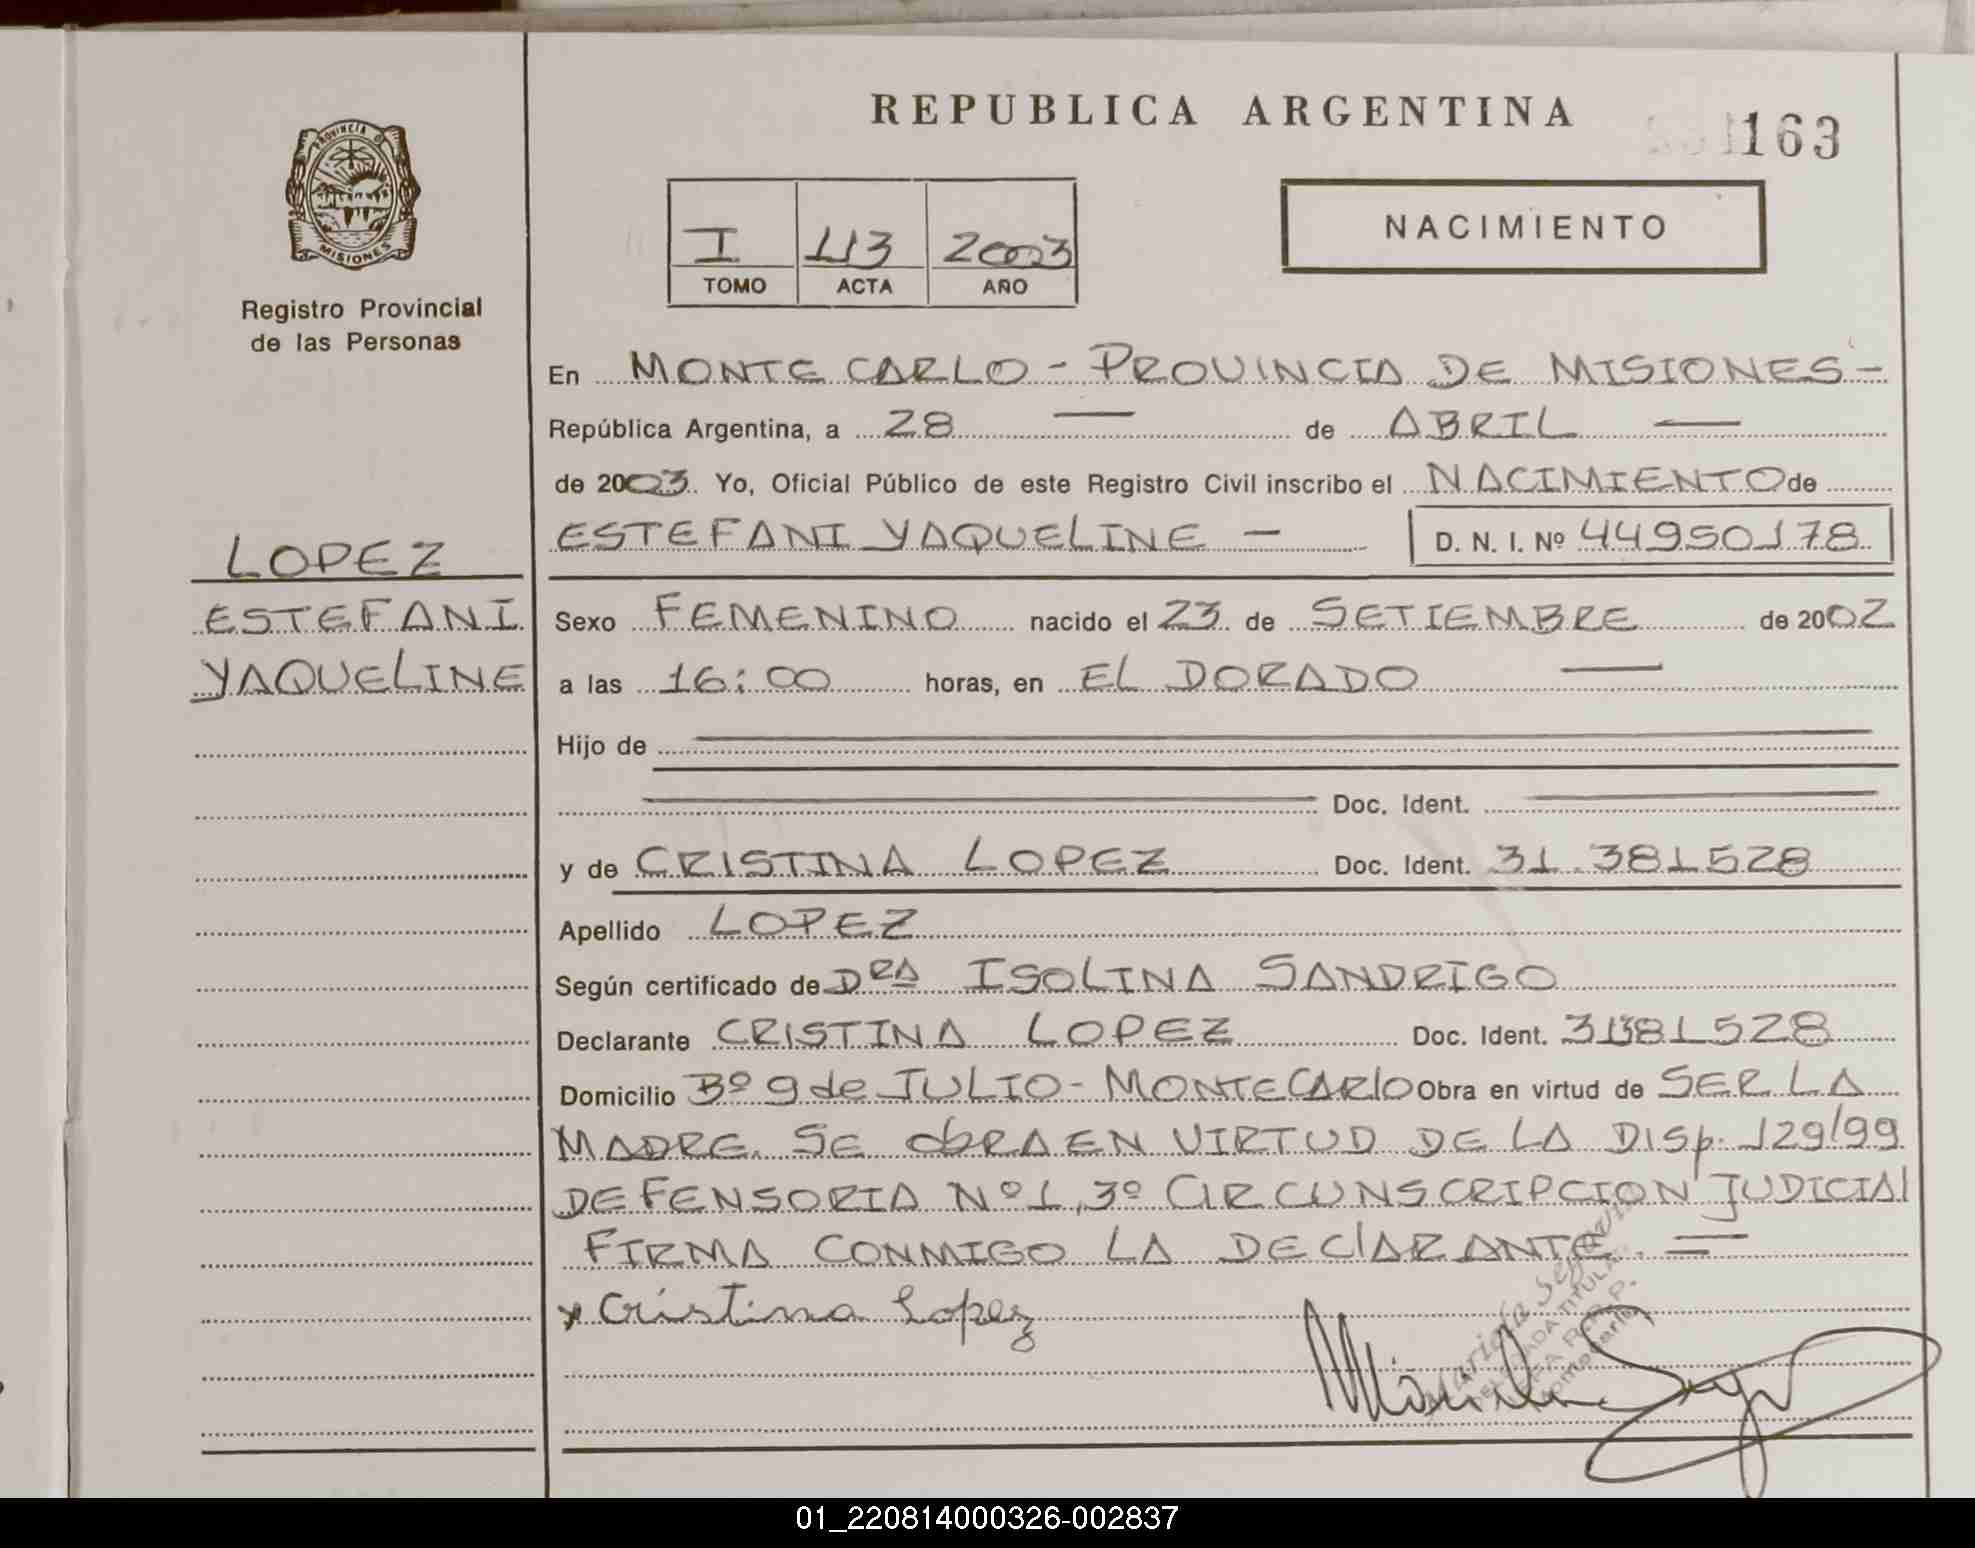 REPUBLICA ARGENTINA
163
PROVINCIA D
MISIONES
Registro Provincial
de las Personas
I 113 2003
TOMO ACTA AÑO
NACIMIENTO
En MONTE CARLO - PROVINCIA DE MISIONES -
República Argentina, a 28 — de ABRIL —
de 2003. Yo, Oficial Público de este Registro Civil inscribo el NACIMIENTO de
ESTEFANI YAQUELINE — D. N. I. Nº 44950178
LOPEZ
ESTEFANI
YAQUELINE
Sexo FEMENINO nacido el 23 de SETIEMBRE de 2002
a las 16:00 horas, en EL DORADO —
Hijo de
Doc. Ident.
y de CRISTINA LOPEZ Doc. Ident. 31.381528
Apellido LOPEZ
Según certificado de DRA ISOLINA SANDRIGO
Declarante CRISTINA LOPEZ Doc. Ident. 31381528
Domicilio Bº 9 de JULIO - MONTECARlO Obra en virtud de SER LA
MADRE. SE ObRA EN VIRTUD DE LA DISp. 129/99
DEFENSORIA Nº 1, 3º CIRCUNSCRIPCION JUDICIAl
FIRMA CONMIGO LA DEClARANTE. =
x Cristina Lopez
DELEGADA TITULAR
R. P. P.
01_220814000326-002837